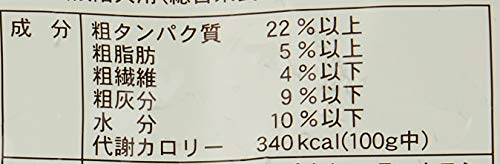 成 分
粗タンパク質 22 %以上
粗脂肪 5 %以上
粗繊維 4 %以下
粗灰分 9 %以下
水 分 10 %以下
代謝カロリー 340 kcal(100g中)